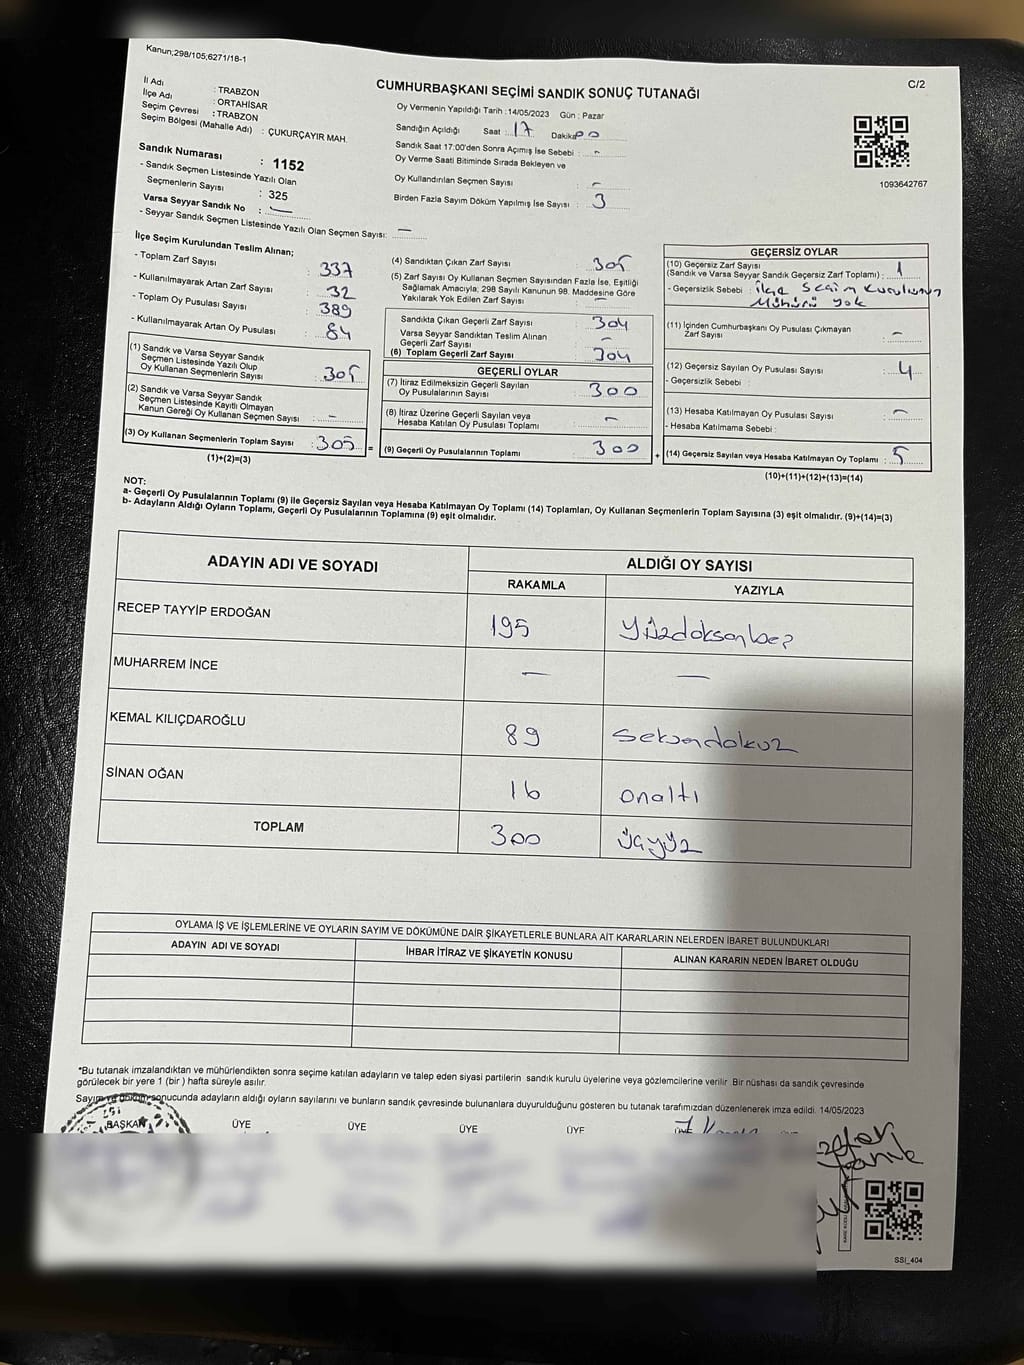 Kanun;298/105;6271/18-1
C/2
CUMHURBAŞKANI SEÇİMİ SANDIK SONUÇ TUTANAĞI
İl Adı : TRABZON
İlçe Adı : ORTAHİSAR
Seçim Çevresi : TRABZON
Seçim Bölgesi (Mahalle Adı) : ÇUKURÇAYIR MAH.
Sandık Numarası : 1152
- Sandık Seçmen Listesinde Yazılı Olan
Seçmenlerin Sayısı : 325
Varsa Seyyar Sandık No : —
- Seyyar Sandık Seçmen Listesinde Yazılı Olan Seçmen Sayısı: —
Oy Vermenin Yapıldığı Tarih : 14/05/2023 Gün : Pazar
Sandığın Açıldığı Saat : 17 Dakika 00
Sandık Saat 17.00'den Sonra Açımış İse Sebebi : -
Oy Verme Saati Bitiminde Sırada Bekleyen ve
Oy Kullandırılan Seçmen Sayısı : -
Birden Fazla Sayım Döküm Yapılmış İse Sayısı : 3
1093642767
İlçe Seçim Kurulundan Teslim Alınan;
- Toplam Zarf Sayısı : 337
- Kullanılmayarak Artan Zarf Sayısı : 32
- Toplam Oy Pusulası Sayısı : 389
- Kullanılmayarak Artan Oy Pusulası : 84
(1) Sandık ve Varsa Seyyar Sandık
Seçmen Listesinde Yazılı Olup
Oy Kullanan Seçmenlerin Sayısı : 305
(2) Sandık ve Varsa Seyyar Sandık
Seçmen Listesinde Kayıtlı Olmayan
Kanun Gereği Oy Kullanan Seçmen Sayısı : -
(3) Oy Kullanan Seçmenlerin Toplam Sayısı : 305 =
(1)+(2)=(3)
(4) Sandıktan Çıkan Zarf Sayısı : 305
(5) Zarf Sayısı Oy Kullanan Seçmen Sayısından Fazla İse, Eşitliği
Sağlamak Amacıyla; 298 Sayılı Kanunun 98. Maddesine Göre
Yakılarak Yok Edilen Zarf Sayısı : —
Sandıkta Çıkan Geçerli Zarf Sayısı : 304
Varsa Seyyar Sandıktan Teslim Alınan
Geçerli Zarf Sayısı : -
(6) Toplam Geçerli Zarf Sayısı : 304
GEÇERLİ OYLAR
(7) İtiraz Edilmeksizin Geçerli Sayılan
Oy Pusulalarının Sayısı : 300
(8) İtiraz Üzerine Geçerli Sayılan veya
Hesaba Katılan Oy Pusulası Toplamı : -
(9) Geçerli Oy Pusulalarının Toplamı : 300 +
GEÇERSİZ OYLAR
(10) Geçersiz Zarf Sayısı
(Sandık ve Varsa Seyyar Sandık Geçersiz Zarf Toplamı) : 1
- Geçersizlik Sebebi : ilçe Seçim Kurulunun
Mührü yok
(11) İçinden Cumhurbaşkanı Oy Pusulası Çıkmayan
Zarf Sayısı : -
(12) Geçersiz Sayılan Oy Pusulası Sayısı : 4
- Geçersizlik Sebebi :
(13) Hesaba Katılmayan Oy Pusulası Sayısı : -
- Hesaba Katılmama Sebebi :
(14) Geçersiz Sayılan veya Hesaba Katılmayan Oy Toplamı : 5
(10)+(11)+(12)+(13)=(14)
NOT:
a- Geçerli Oy Pusulalarının Toplamı (9) ile Geçersiz Sayılan veya Hesaba Katılmayan Oy Toplamı (14) Toplamları, Oy Kullanan Seçmenlerin Toplam Sayısına (3) eşit olmalıdır. (9)+(14)=(3)
b- Adayların Aldığı Oyların Toplamı, Geçerli Oy Pusulalarının Toplamına (9) eşit olmalıdır.
ADAYIN ADI VE SOYADI ALDIĞI OY SAYISI
RAKAMLA YAZIYLA
RECEP TAYYİP ERDOĞAN 195 yüzdoksanbeş
MUHARREM İNCE — —
KEMAL KILIÇDAROĞLU 89 seksendokuz
SİNAN OĞAN 16 onaltı
TOPLAM 300 üçyüz
OYLAMA İŞ VE İŞLEMLERİNE VE OYLARIN SAYIM VE DÖKÜMÜNE DAİR ŞİKAYETLERLE BUNLARA AİT KARARLARIN NELERDEN İBARET BULUNDUKLARI
ADAYIN ADI VE SOYADI İHBAR İTİRAZ VE ŞİKAYETİN KONUSU ALINAN KARARIN NEDEN İBARET OLDUĞU
*Bu tutanak imzalandıktan ve mühürlendikten sonra seçime katılan adayların ve talep eden siyasi partilerin sandık kurulu üyelerine veya gözlemcilerine verilir. Bir nüshası da sandık çevresinde
görülecek bir yere 1 (bir ) hafta süreyle asılır.
Sayım ve döküm sonucunda adayların aldığı oyların sayılarını ve bunların sandık çevresinde bulunanlara duyurulduğunu gösteren bu tutanak tarafımızdan düzenlenerek imza edildi. 14/05/2023
BAŞKAN ÜYE ÜYE ÜYE ÜYE
SSI_404